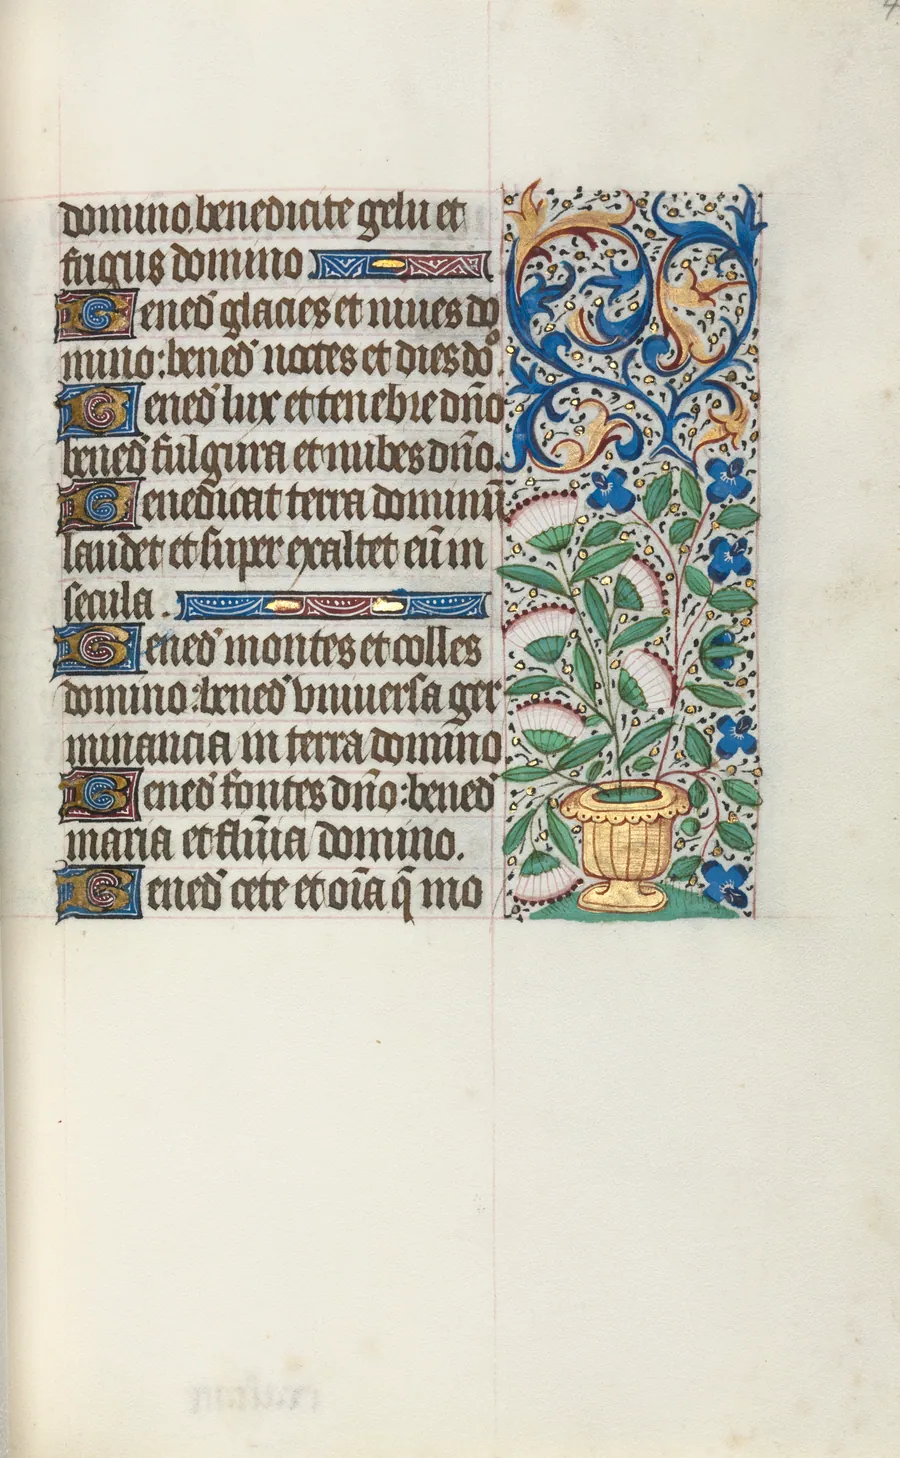 domino. benedicite gelu et
frigus domino
Bened̄ glacies et niues do
mino: bened̄ noctes et dies dõ.
Bened̄ lux et tenebre dño
bened̄ fulgura et nubes dño.
Benedicat terra dominū
laudet et super exaltet eū in
secula.
Bened̄ montes et colles
domino: bened̄ vniuersa ger
minancia in terra domino
Bened̄ fontes dño: bened̄
maria et flūia domino.
Bened̄ cete et oīa q̄ mo